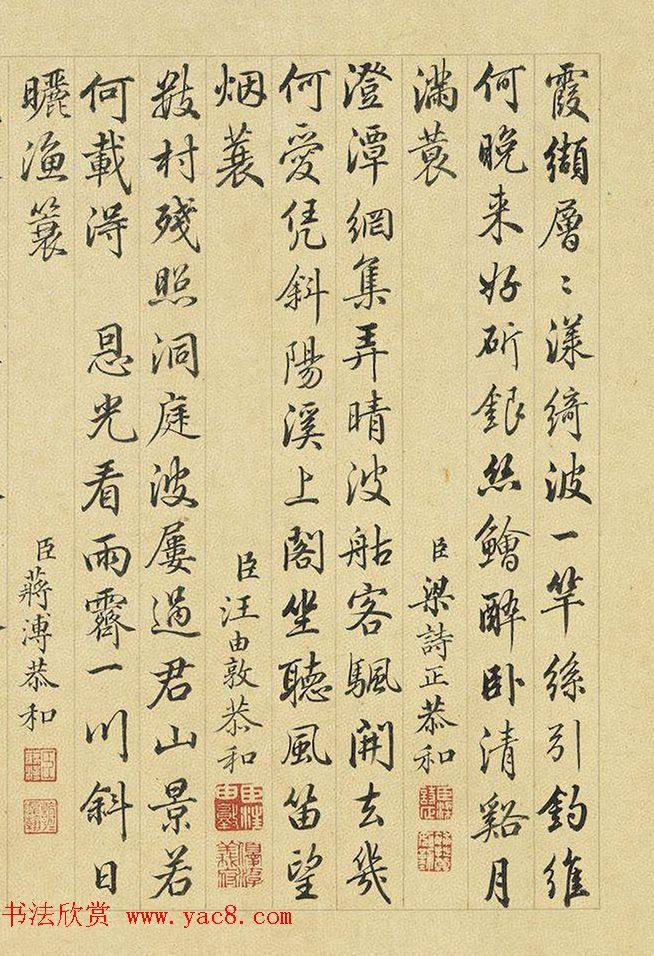 霞纈層〻漾綺波一竿絲引釣維
何晚来好斫銀絲鱠醉卧清谿月
满蓑
臣梁詩正恭和
澄潭網集弄晴波客颿開去幾
何愛凭斜陽溪上閣坐聽風笛望
烟蓑
臣汪由敦恭和
數村殘照洞庭波屢過君山景若
何載得 恩光看雨霽一川斜日
曬漁簑
臣蔣溥恭和
书法欣赏 www.yac8.com